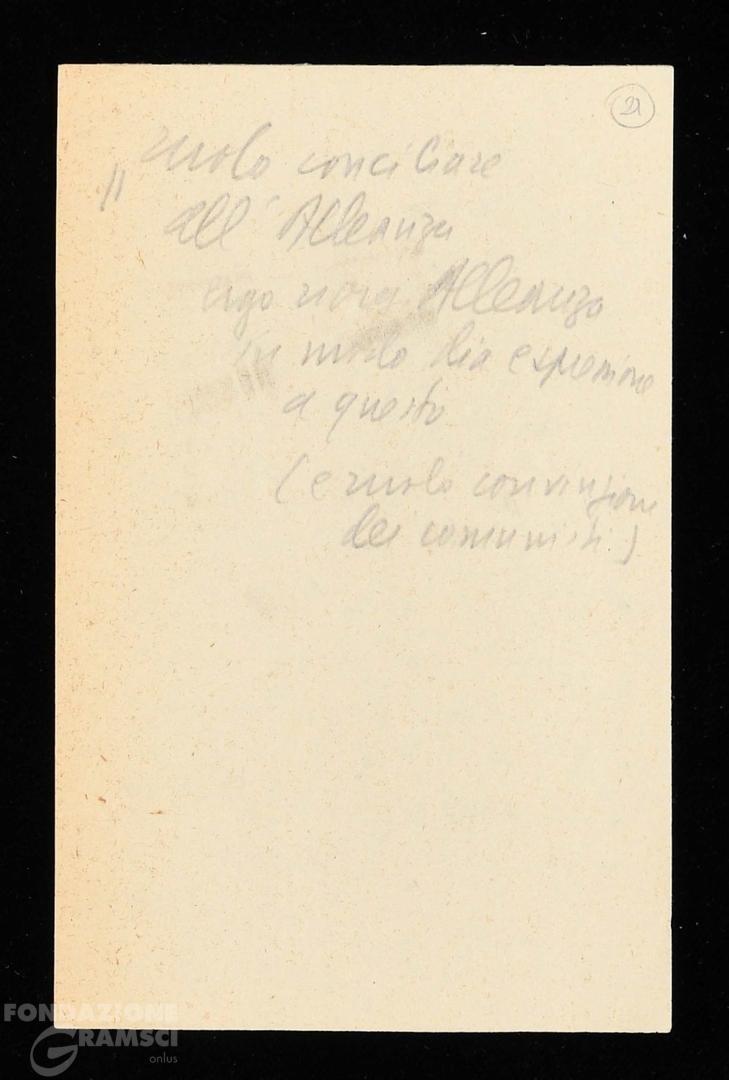 21
ruolo conciliare
all'Alleanza
ergo nova Alleanza
in modo dia espressione
a questo
(e ruolo convinzione
dei comunisti)
FONDAZIONE
GRAMSCI
onlus